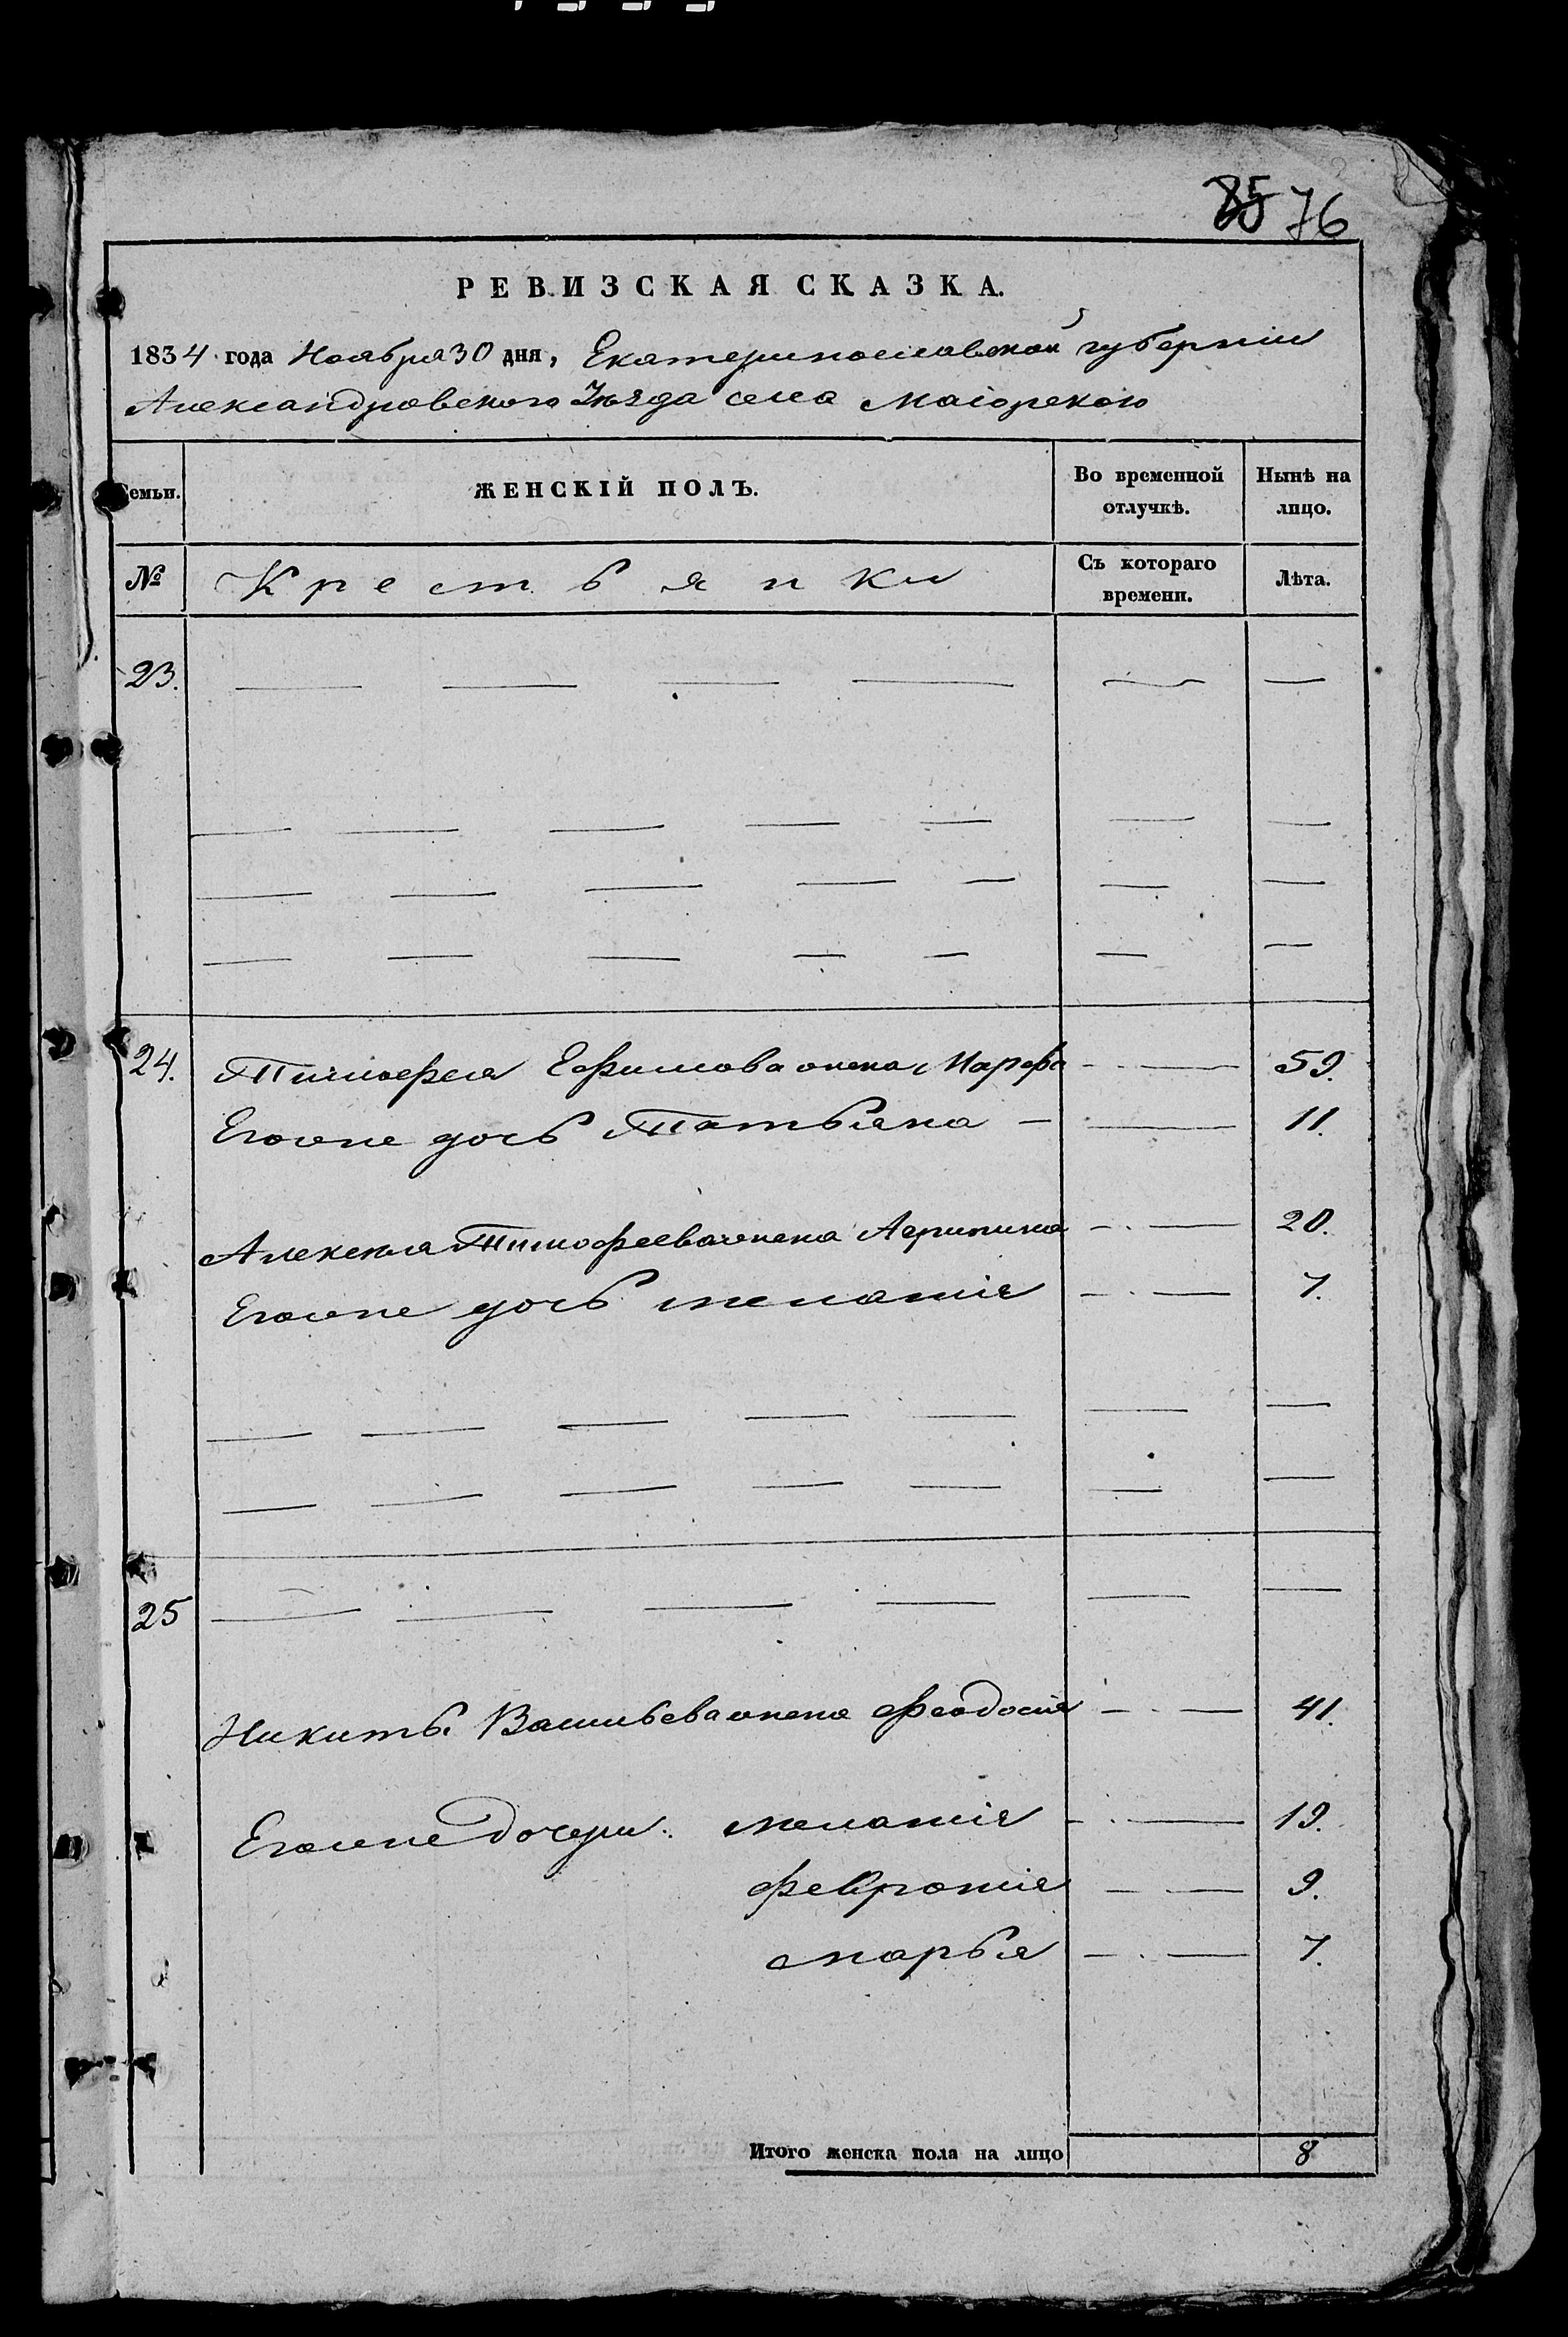 85 76
РЕВИЗСКАЯ СКАЗКА.
1834 года Ноября 30 дня, Екатеринославской губернии
Александровского Уѣзда села Маіорскаго
Семьи. ЖЕНСКІЙ ПОЛЪ. Во временной отлучкѣ. Нынѣ на лицо.
№ Крестьянки Съ котораго времени. Лѣта.
23. — — — — — —
— — — — — — —
— — — — — — —
— — — — — — —
24. Тимофея Ефимова жена Марфа — 59.
Егоже дочь Татьяна — — 11.
Алексѣя Тимофеева жена Агрипина — 20.
Егоже дочь Меланія — 7.
— — — — — — —
— — — — — — —
25 — — — — — —
Никиты Васильева жена Феодосія — 41.
Егоже дочери: Меланія — 19.
Февронія — 9.
Марья — 7.
Итого женска пола на лицо 8